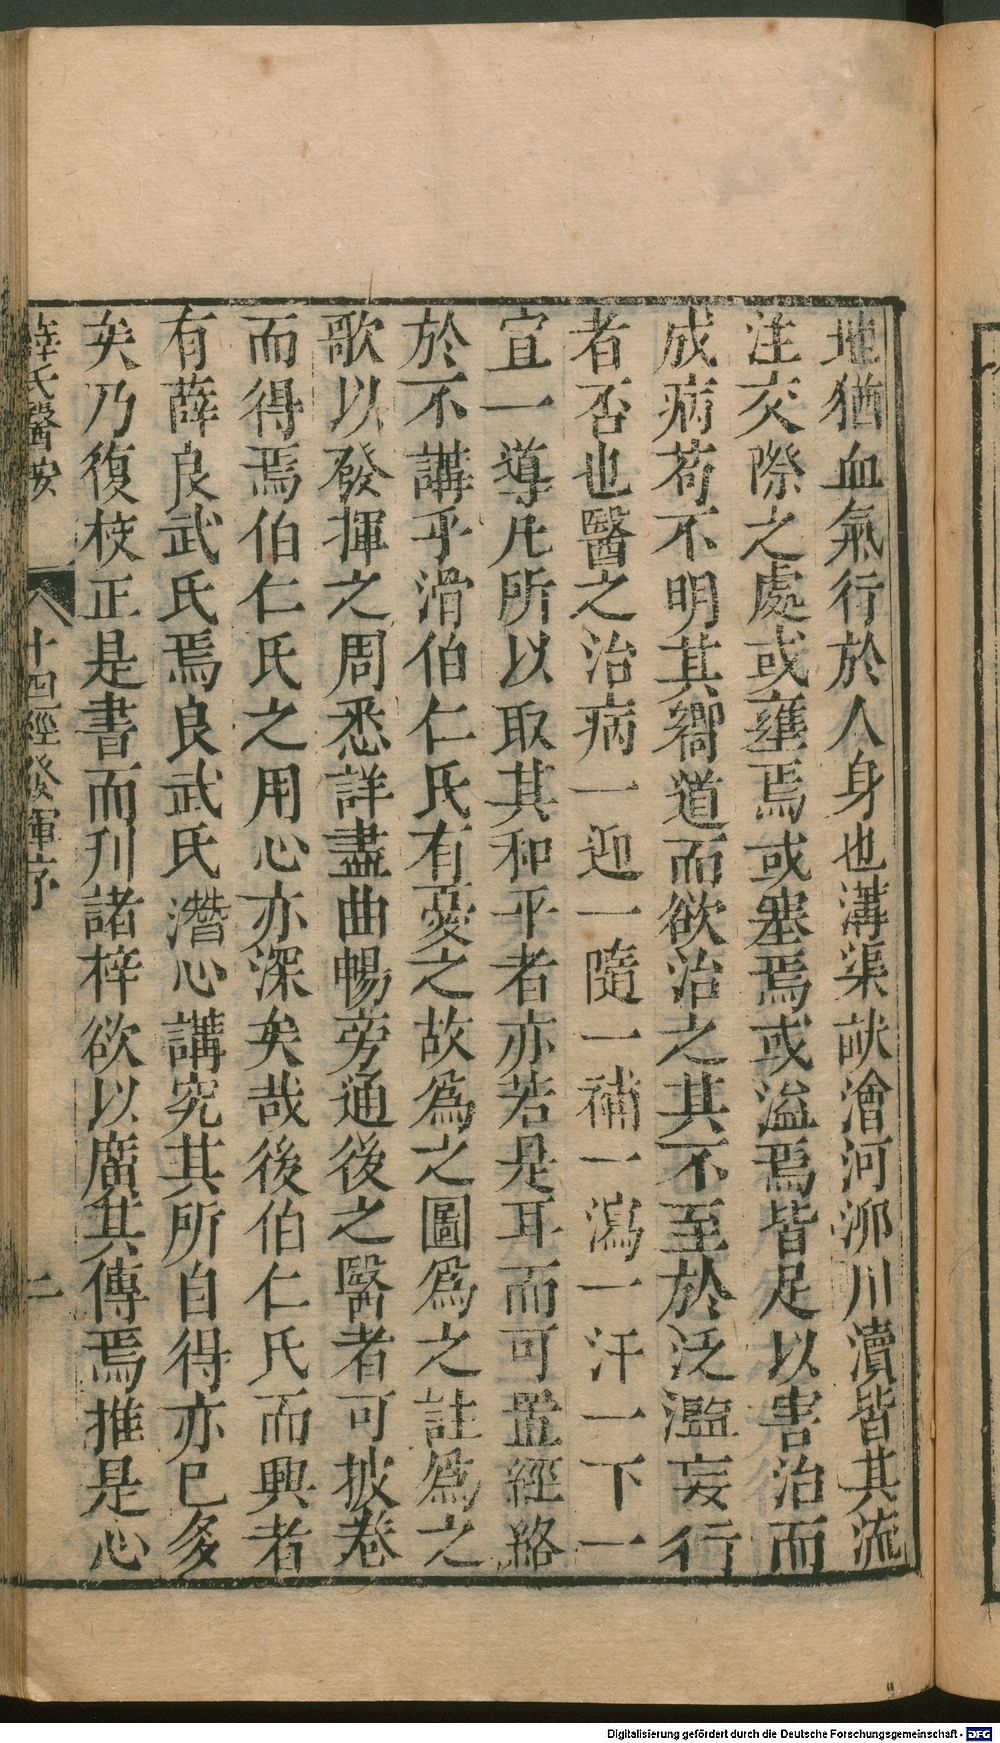 地猶血氣行於人身也溝渠畎澮河泖川瀆皆其流
注交際之處或壅焉或塞焉或溢焉皆足以害治而
成病苟不明其嚮道而欲治之其不至於泛濫妄行
者否也醫之治病一迎一隨一補一瀉一汗一下一
宣一導凡所以取其和平者亦若是耳而可置經絡
於不講乎滑伯仁氏有憂之故為之圖為之註為之
歌以發揮之周悉詳盡曲暢旁通後之醫者可披卷
而得焉伯仁氏之用心亦深矣哉後伯仁氏而興者
有薛良武氏焉良武氏潛心講究其所自得亦已多
矣乃復校正是書而刋諸梓欲以廣其傳焉推是心
薛氏醫按
十四經發揮序
二
Digitalisierung gefördert durch die Deutsche Forschungsgemeinschaft - DFG